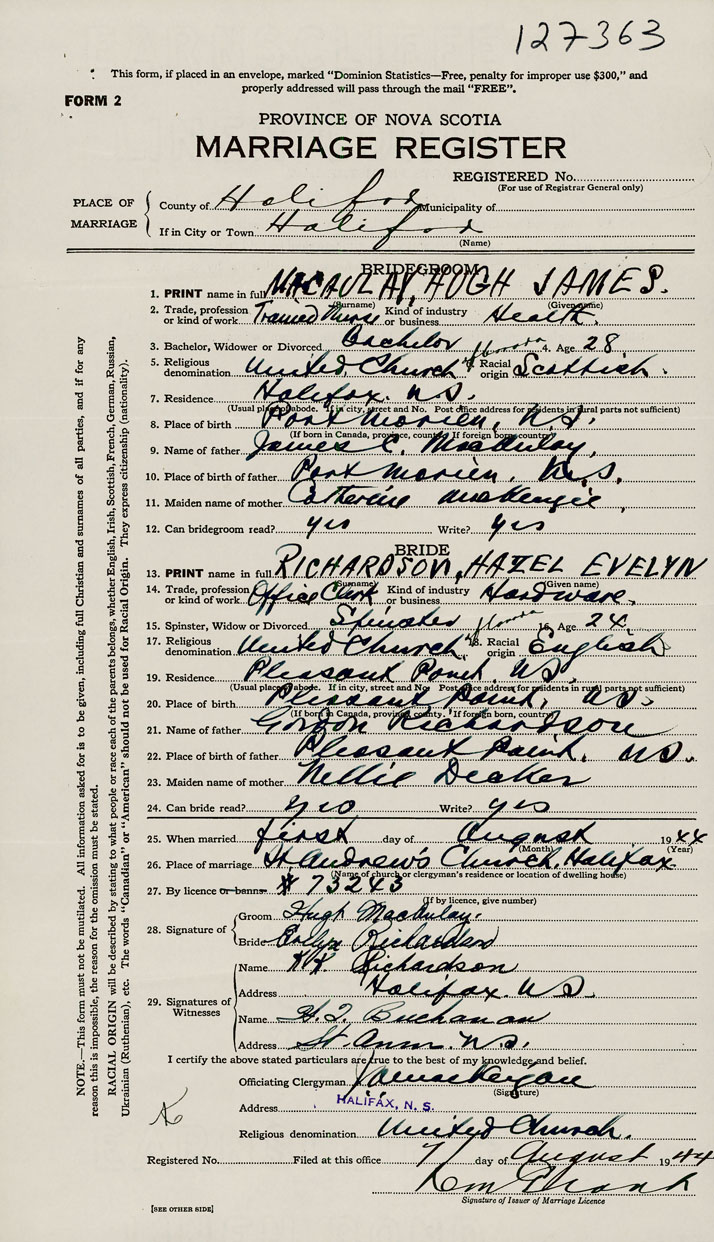 127363
This form, if placed in an envelope, marked "Dominion Statistics—Free, penalty for improper use $300," and
properly addressed will pass through the mail "FREE".
FORM 2
PROVINCE OF NOVA SCOTIA
MARRIAGE REGISTER
REGISTERED No.
(For use of Registrar General only)
PLACE OF MARRIAGE
County of Halifax Municipality of
If in City or Town Halifax
(Name)
BRIDEGROOM
1. PRINT name in full MACAULAY, HUGH JAMES.
(Surname) (Given name)
2. Trade, profession or kind of work Trained Nurse Kind of industry or business Health.
3. Bachelor, Widower or Divorced Bachelor 4. Age 28
5. Religious denomination United Church 6. Racial origin Scottish.
7. Residence Halifax. N.S.
(Usual place of abode. If in city, street and No. Post office address for residents in rural parts not sufficient)
8. Place of birth Port Morien, N.S.
(If born in Canada, province, county. If foreign born country)
9. Name of father James C. MacAulay,
10. Place of birth of father Port Morien. N.S.
11. Maiden name of mother Catherine MacKenzie,
12. Can bridegroom read? yes Write? yes
BRIDE
13. PRINT name in full RICHARDSON, HAZEL EVELYN
(Surname) (Given name)
14. Trade, profession or kind of work Office Clerk Kind of industry or business Hardware.
15. Spinster, Widow or Divorced Spinster 16. Age 24.
17. Religious denomination United Church 18. Racial origin English
19. Residence Pleasant Point. N.S.
(Usual place of abode. If in city, street and No. Post office address for residents in rural parts not sufficient)
20. Place of birth Pleasant Point, N.S.
(If born in Canada, province, county. If foreign born, country)
21. Name of father Gordon Richardson
22. Place of birth of father Pleasant Point. N.S.
23. Maiden name of mother Nellie Deaker
24. Can bride read? yes Write? yes
25. When married first day of August 1944
(Month) (Year)
26. Place of marriage St. Andrew's Church. Halifax
(Name of church or clergyman's residence or location of dwelling house)
27. By licence or banns # 73243
(If by licence, give number)
28. Signature of
Groom Hugh MacAulay.
Bride Evelyn Richardson
29. Signatures of Witnesses
Name Richardson
Address Halifax. N.S.
Name Buchanan
Address St. Anns. N.S.
I certify the above stated particulars are true to the best of my knowledge and belief.
Officiating Clergyman
(Signature)
Address HALIFAX, N. S.
Religious denomination United Church.
Registered No. Filed at this office 7 day of August 1944
Signature of Issuer of Marriage Licence
[SEE OTHER SIDE]
NOTE.—This form must not be mutilated. All information asked for is to be given, including full Christian and surnames of all parties, and if for any
reason this is impossible, the reason for the omission must be stated.
RACIAL ORIGIN will be described by stating to what people or race each of the parents belongs, whether English, Irish, Scottish, French, German, Russian,
Ukrainian (Ruthenian), etc. The words "Canadian" or "American" should not be used for Racial Origin. They express citizenship (nationality).